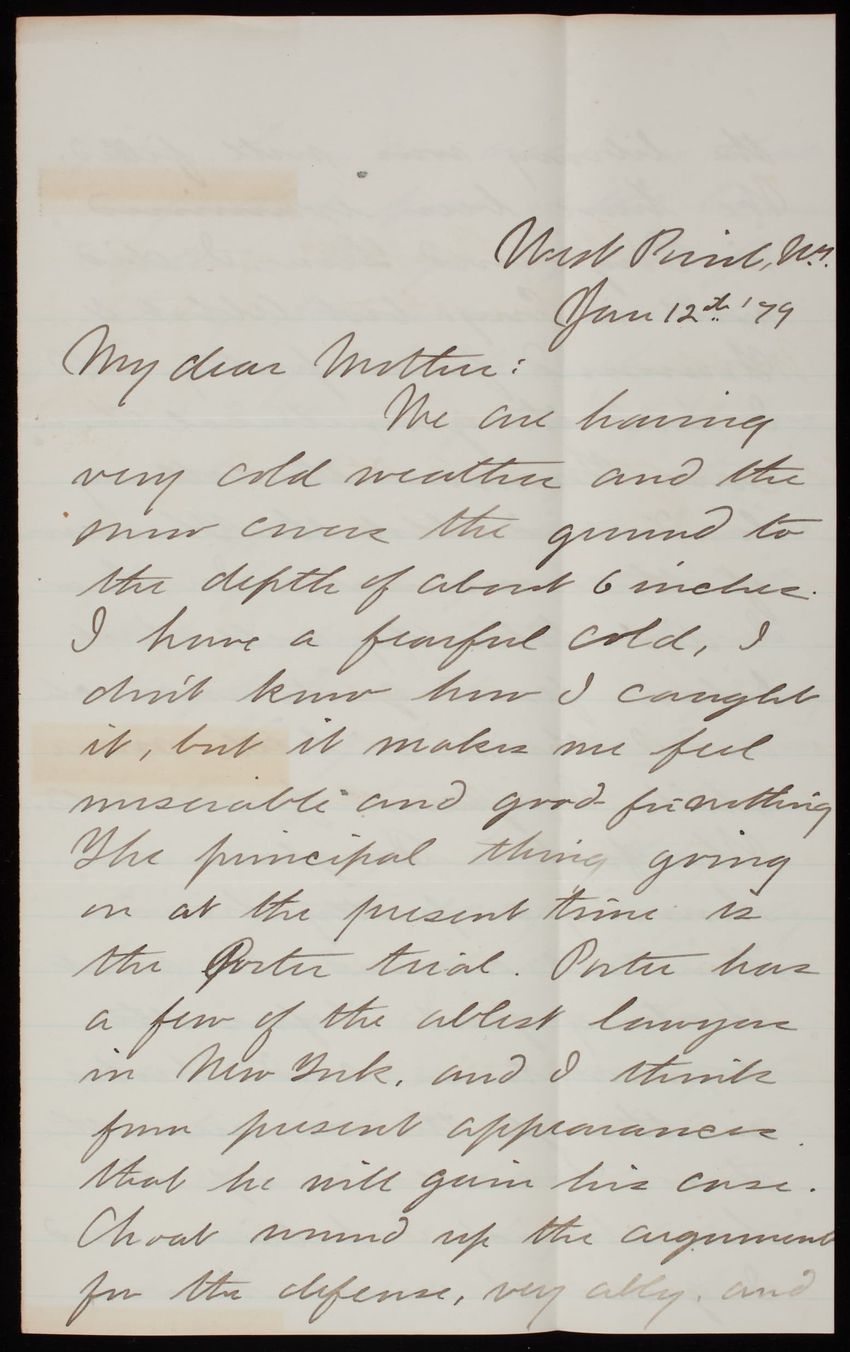 West Point, N.Y.
Jan 12th '79
My dear Mother:
We are having
very cold weather and the
snow covers the ground to
the depth of about 6 inches.
I have a fearful cold, I
don't know how I caught
it, but it makes me feel
miserable and good for nothing
The principal thing going
on at the present time is
the Porter trial. Porter has
a few of the ablest lawyers
in New York, and I think
from present appearances
that he will gain his case.
Choat wound up the argument
for the defense, very ably, and